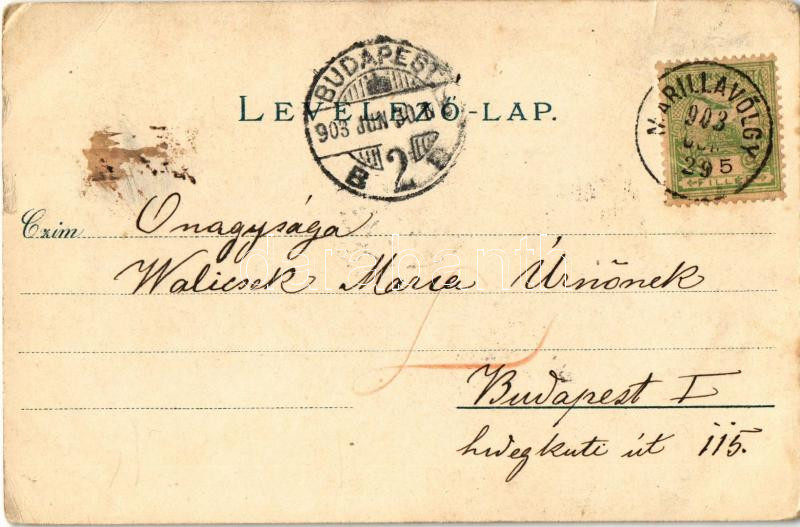 LEVELEZŐ-LAP.
BUDAPEST
903 JUN 30
B 2 B
MARILLAVÖLGY
903
JUN
29
5
FILLÉR
Czim Őnagysága
Walicsek Marsa Úrnőnek
Budapest I
hidegkuti út 115.